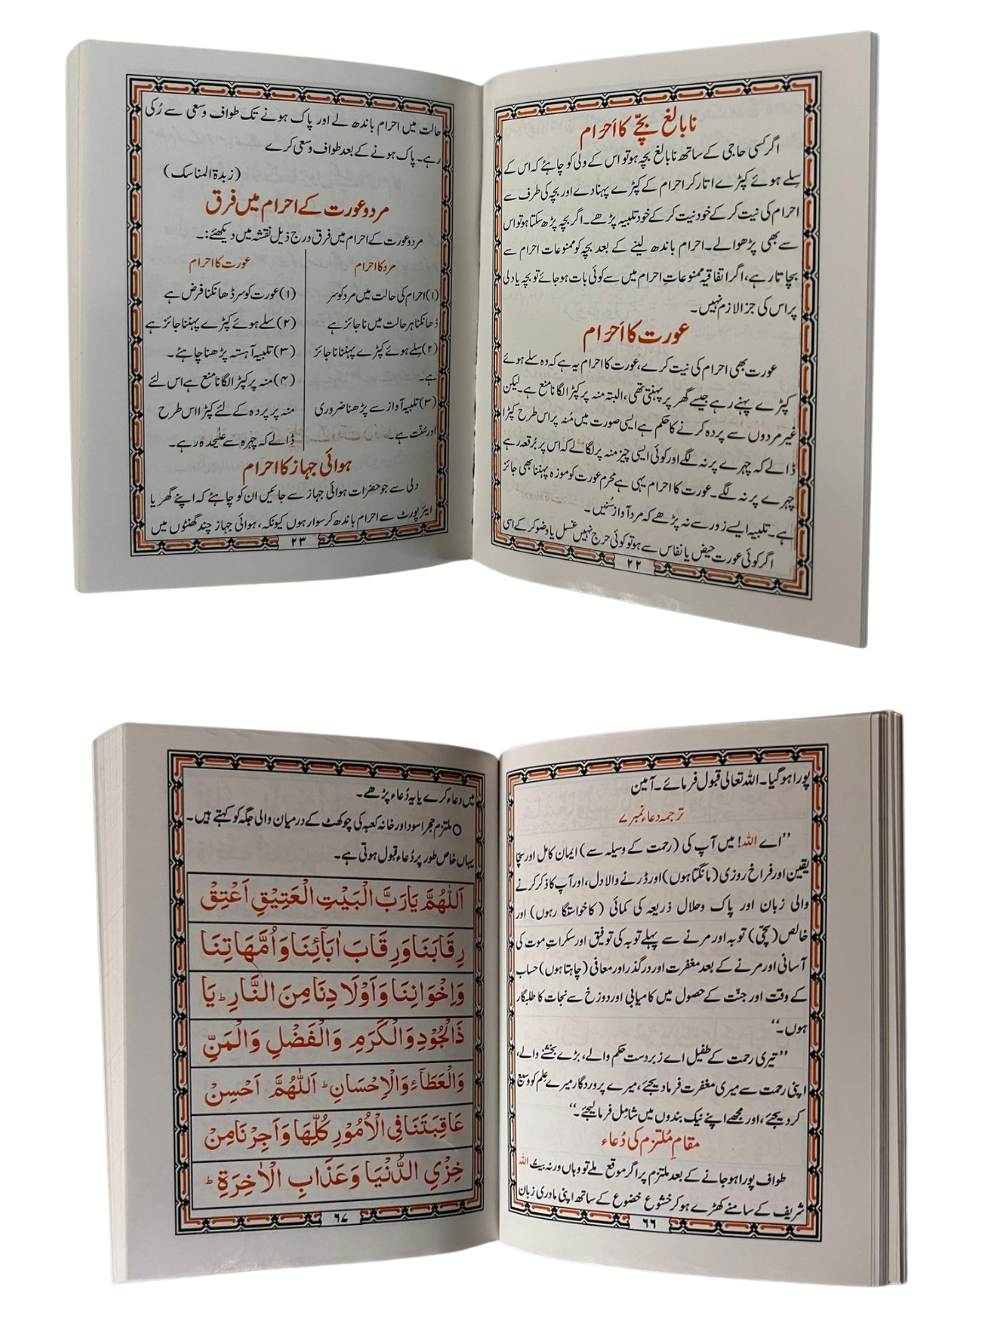 نابالغ بچّے کا اَحرَام
اگر کسی حاجی کے ساتھ نابالغ بچہ ہو تو اس کے ولی کو چاہئے کہ اس کے
سِلے ہوئے کپڑے اتار کر احرام کے کپڑے پہنا دے اور بچہ کی طرف سے
احرام کی نیت کر کے خود نیت کر کے خود تلبیہ پڑھے۔ اگر بچہ پڑھ سکتا ہو تو اس
سے بھی پڑھوا لے۔ احرام باندھ لینے کے بعد بچہ کو ممنوعات احرام سے
بچاتا رہے، اگر اتفاقیہ ممنوعاتِ احرام میں سے کوئی بات ہو جائے تو بچہ یا ولی
پر اس کی جزا لازم نہیں۔
عورت کا اَحرَام
عورت بھی احرام کی نیت کرے، عورت کا احرام یہ ہے کہ وہ سلے ہوئے
کپڑے پہنے رہے جیسے گھر پر پہنتی تھی، البتہ منہ پر کپڑا لگانا منع ہے۔ لیکن
غیر مردوں سے پردہ کرنے کا حکم ہے ایسی صورت میں مُنہ پر اس طرح کپڑا
ڈالے کہ چہرے پر نہ لگے اور کوئی ایسی چیز منہ پر لگا لے کہ اس پر بُرقعہ رہے
چہرے پر نہ لگے۔ عورت کا احرام یہی ہے محرم عورت کو موزہ پہننا بھی جائز
ہے۔ تلبیہ ایسے زور سے نہ پڑھے کہ مرد آواز سُنیں۔
اگر کوئی عورت حیض یا نفاس سے ہو تو کوئی حرج نہیں غسل یا وضو کر کے اسی
۲۲
حالت میں احرام باندھ لے اور پاک ہونے تک طواف وسعی سے رُکی
رہے۔ پاک ہونے کے بعد طواف وسعی کرے
(زبدۃ المناسک)
مرد و عورت کے احرام میں فرق
مرد و عورت کے احرام میں فرق درج ذیل نقشہ میں دیکھئے:۔
مرد کا احرام
(۱) احرام کی حالت میں مرد کو سر
ڈھانکنا ہر حالت میں ناجائز ہے
(۲) سِلے ہوئے کپڑے پہننا ناجائز
ہے۔
(۳) تلبیہ آواز سے پڑھنا ضروری
اور سنّت ہے۔
عورت کا احرام
(۱) عورت کو سر ڈھانکنا فرض ہے
(۲) سِلے ہوئے کپڑے پہننا جائز ہے
(۳) تلبیہ آہستہ پڑھنا چاہئے۔
(۴) منہ پر کپڑا لگانا منع ہے اس لئے
منہ پر پردہ کے لئے کپڑا اس طرح
ڈالے کہ چہرہ سے علیٰحدہ رہے۔
ہوائی جہاز کا احرام
دلی سے جو حضرات ہوائی جہاز سے جائیں ان کو چاہئے کہ اپنے گھر یا
ایئرپورٹ سے احرام باندھ کر سوار ہوں کیونکہ، ہوائی جہاز چند گھنٹوں میں
۲۳
پورا ہو گیا۔ اللہ تعالیٰ قبول فرمائے۔ آمین
ترجمہ دعاء نمبر ۷
’’اے اللہ! میں آپ کی (رحمت کے وسیلہ سے) ایمان کامل اور سچا
یقین اور فراخ روزی (مانگتا ہوں) اور ڈرنے والا دل، اور آپ کا ذکر کرنے
والی زبان اور پاک وحلال ذریعہ کی کمائی (کا خواستگار ہوں) اور
خالص (سچّی) توبہ اور مرنے سے پہلے توبہ کی توفیق اور سکراتِ موت کی
آسانی اور مرنے کے بعد مغفرت اور درگذر اور معافی (چاہتا ہوں) حساب
کے وقت اور جنّت کے حصول میں کامیابی اور دوزخ سے نجات کا طلبگار
ہوں۔‘‘
’’تیری رحمت کے طفیل اے زبردست حکم والے، بڑے بخشنے والے،
اپنی رحمت سے میری مغفرت فرما دیجئے، میرے پروردگار میرے علم کو وسیع
کر دیجئے، اور مجھے اپنے نیک بندوں میں شامل فرما لیجئے۔‘‘
مقامِ مُلتزم کی دُعاء
طواف پورا ہو جانے کے بعد ملتزم پر اگر موقع ملے تو وہاں ورنہ بیتُ اللہ
شریف کے سامنے کھڑے ہو کر خشوع خضوع کے ساتھ اپنی مادری زبان
۶۶
میں دعاء کرے یا یہ دُعاء پڑھے۔
○ ملتزم حجر اسود اور خانہ کعبہ کی چوکھٹ کے درمیان والی جگہ کو کہتے ہیں۔
یہاں خاص طور پر دُعاء قبول ہوتی ہے۔
اَللّٰهُمَّ يَارَبَّ الْبَيْتِ الْعَتِيْقِ اَعْتِقْ
رِقَابَنَا وَرِقَابَ اٰبَآئِنَا وَاُمَّهَاتِنَا
وَاِخْوَانِنَا وَاَوْلَادِنَا مِنَ النَّارِ ؕ يَا
ذَا الْجُوْدِ وَالْكَرَمِ وَالْفَضْلِ وَالْمَنِّ
وَالْعَطَآءِ وَالْاِحْسَانِ ؕ اَللّٰهُمَّ اَحْسِنْ
عَاقِبَتَنَا فِي الْاُمُوْرِ كُلِّهَا وَاَجِرْنَا مِنْ
خِزْيِ الدُّنْيَا وَعَذَابِ الْاٰخِرَةِ ؕ
۶۷